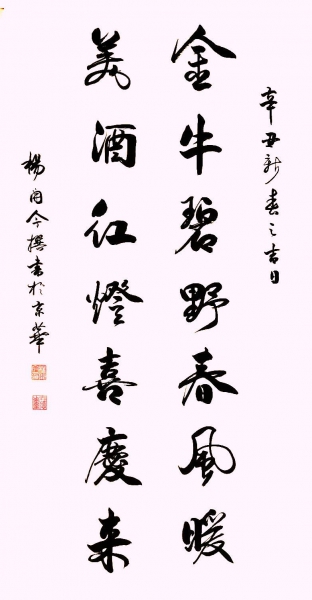 辛丑新春之吉日
金牛碧野春風暖
美酒红燈喜慶来
楊今撰書於京華